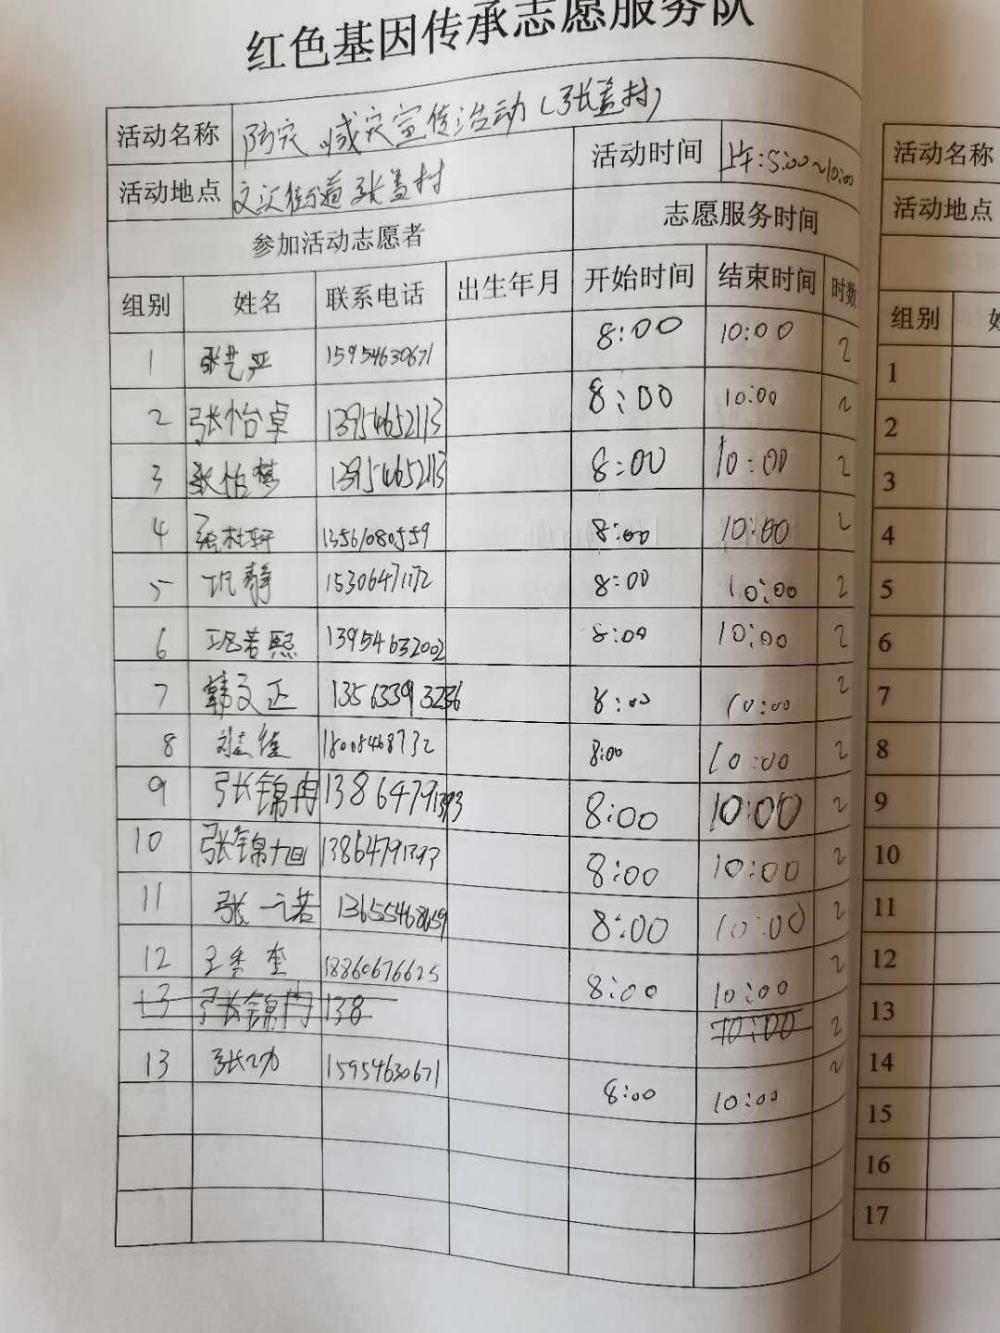 红色基因传承志愿服务队
活动名称 防灾、减灾宣传活动(张盖村) 活动时间 上午:8:00~10:00
活动地点 文汇街道张盖村
参加活动志愿者 志愿服务时间
组别 姓名 联系电话 出生年月 开始时间 结束时间 时数
1 张艺严 15954630671 8:00 10:00 2
2 张怡卓 13954652113 8:00 10:00 2
3 张怡 13954652113 8:00 10:00 2
4 张桂轩 13561080559 8:00 10:00 2
5 巩静 15306471172 8:00 10:00 2
6 巩若熙 13954632002 8:00 10:00 2
7 韩文正 13563393256 8:00 10:00 2
8 刘志佳 18005468732 8:00 10:00 2
9 张锦冉 13864791393 8:00 10:00 2
10 张锦 13864791393 8:00 10:00 2
11 张一诺 13655468659 8:00 10:00 2
12 王秀奎 18860676625 8:00 10:00 2
13 张锦冉 138 10:00 2
13 张功 15954630671 8:00 10:00 2
活动名称
活动地点
组别
1
2
3
4
5
6
7
8
9
10
11
12
13
14
15
16
17